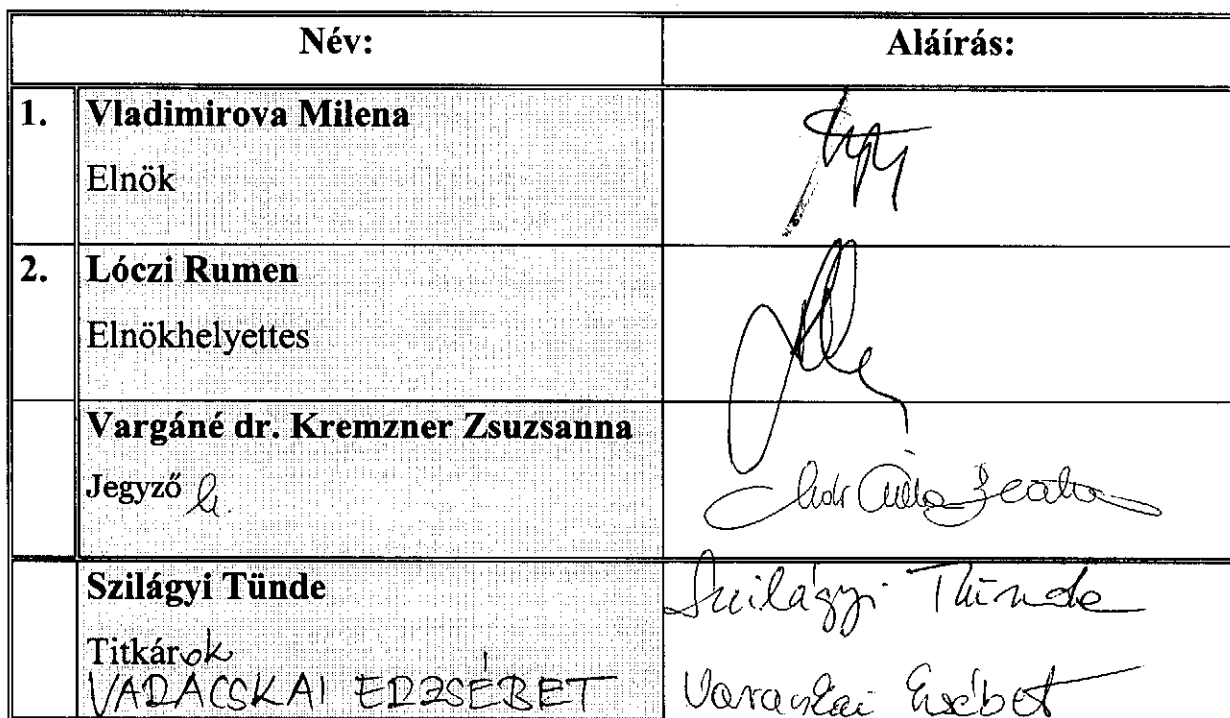 Név: Aláírás:
1. Vladimirova Milena
Elnök
2. Lóczi Rumen
Elnökhelyettes
Vargáné dr. Kremzner Zsuzsanna
Jegyző h.
Szilágyi Tünde Szilágyi Tünde
Titkárok
VARACSKAI ERZSÉBET Varacskai Erzsébet